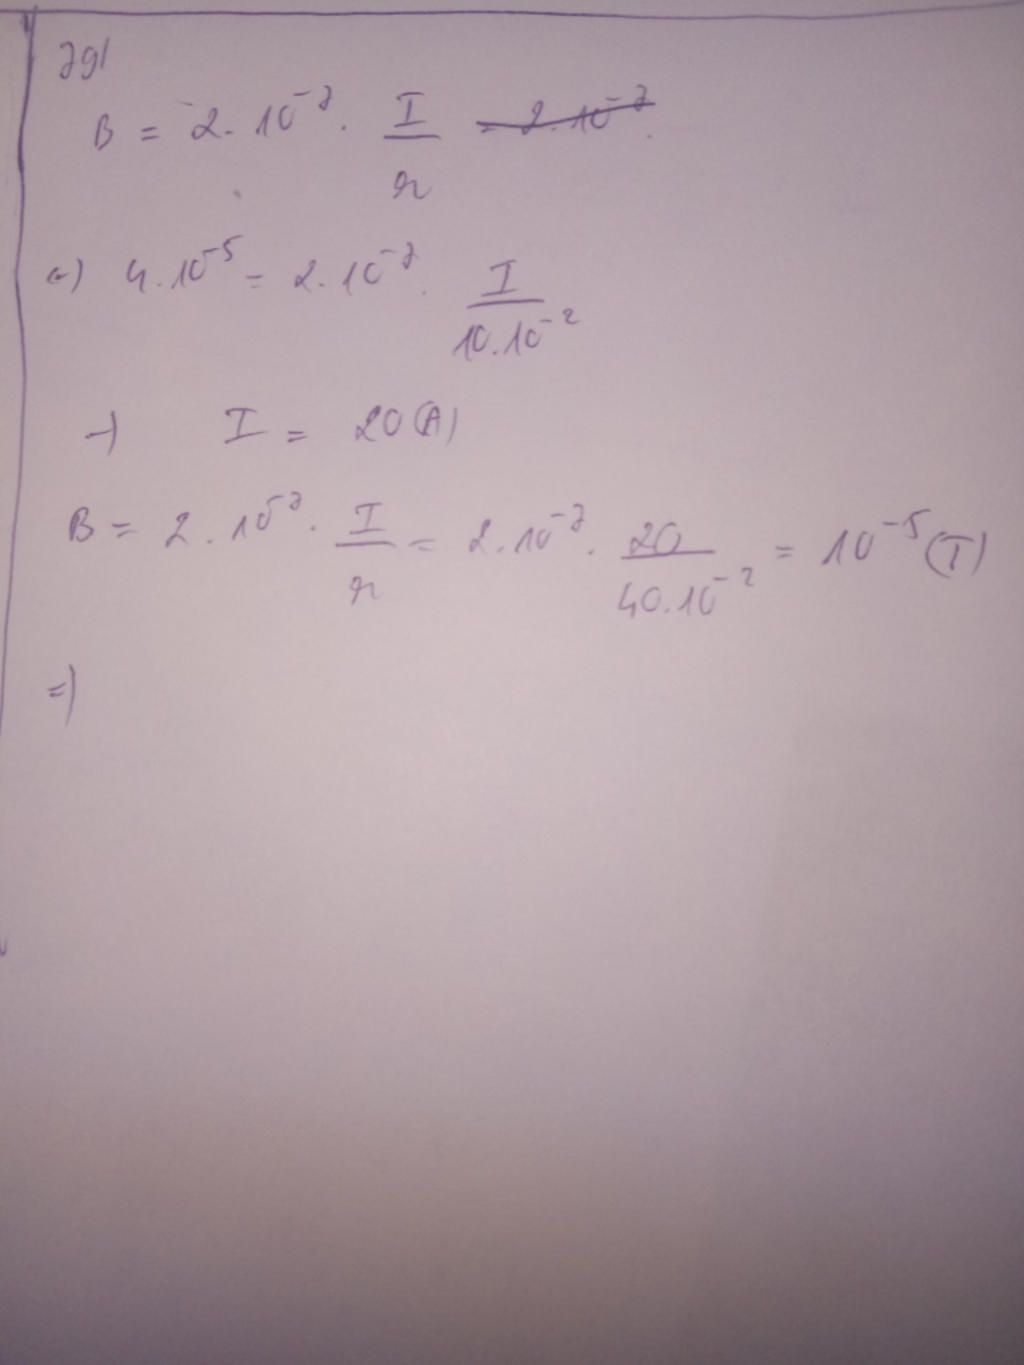 B = 2. 10⁻⁷. I/r
4.10⁻⁵ = 2.10⁻⁷. I/10.10⁻²
→ I = 20(A)
B = 2. 10⁻⁷. I/r = 2.10⁻⁷. 20/40.10⁻² = 10⁻⁵(T)
=)